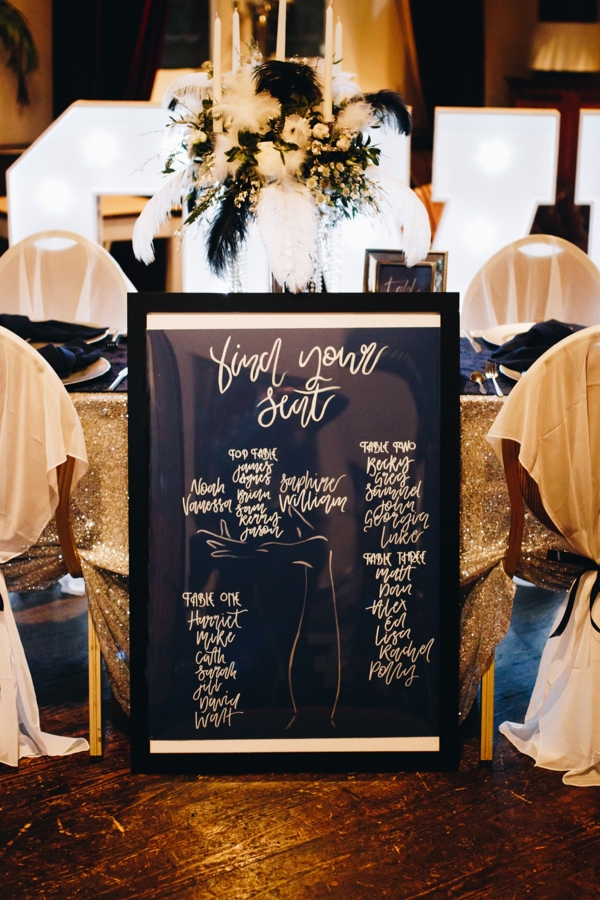 find your
seat
TOP TABLE
James
Agnes
Noah Brian Saphire
Vanessa Sam William
Kerry
Jason
TABLE ONE
Harriet
Mike
Cath
Sarah
Jill
David
Walt
TABLE TWO
Becky
Greg
Samuel
John
Georgia
Luke
TABLE THREE
Matt
Dan
Alex
Ed
Lisa
Rachel
Polly